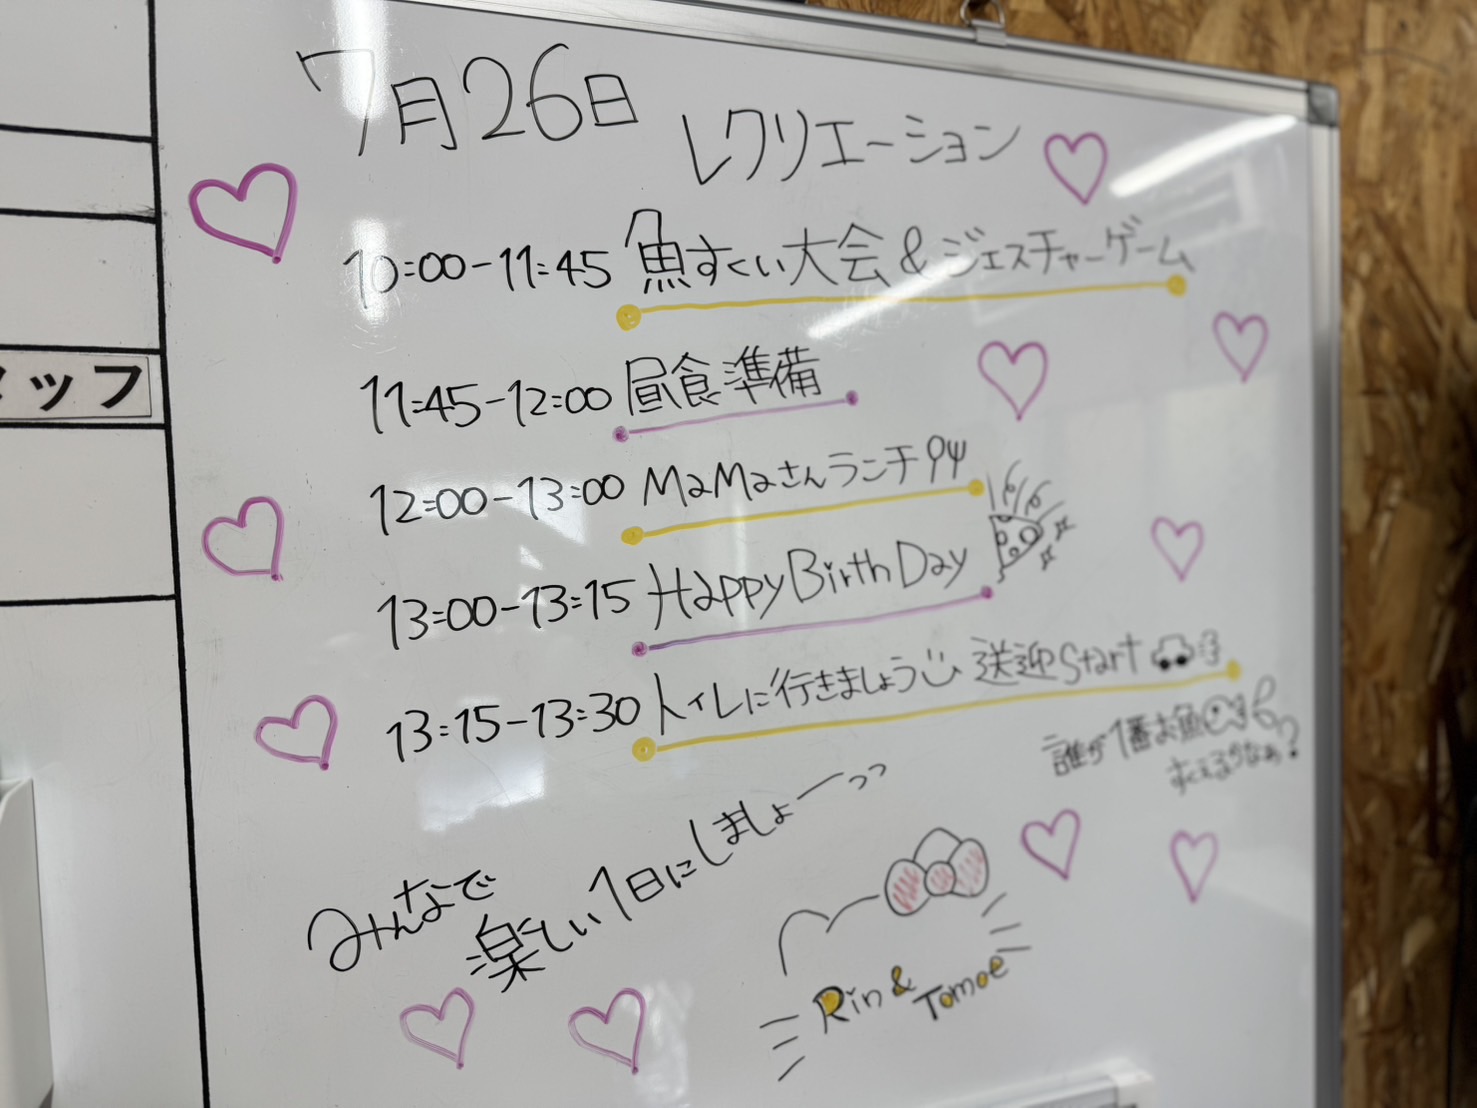 7月26日 レクリエーション
10:00-11:45 魚すくい大会 & ジェスチャーゲーム
11:45-12:00 昼食準備
12:00-13:00 MaMaさんランチ
13:00-13:15 Happy Birth Day
13:15-13:30 トイレに行きましょう 送迎Start
誰が1番お魚
すくえるかなぁ?
みんなで
楽しい1日にしましょーっっ
Rin & Tomoe
ッフ